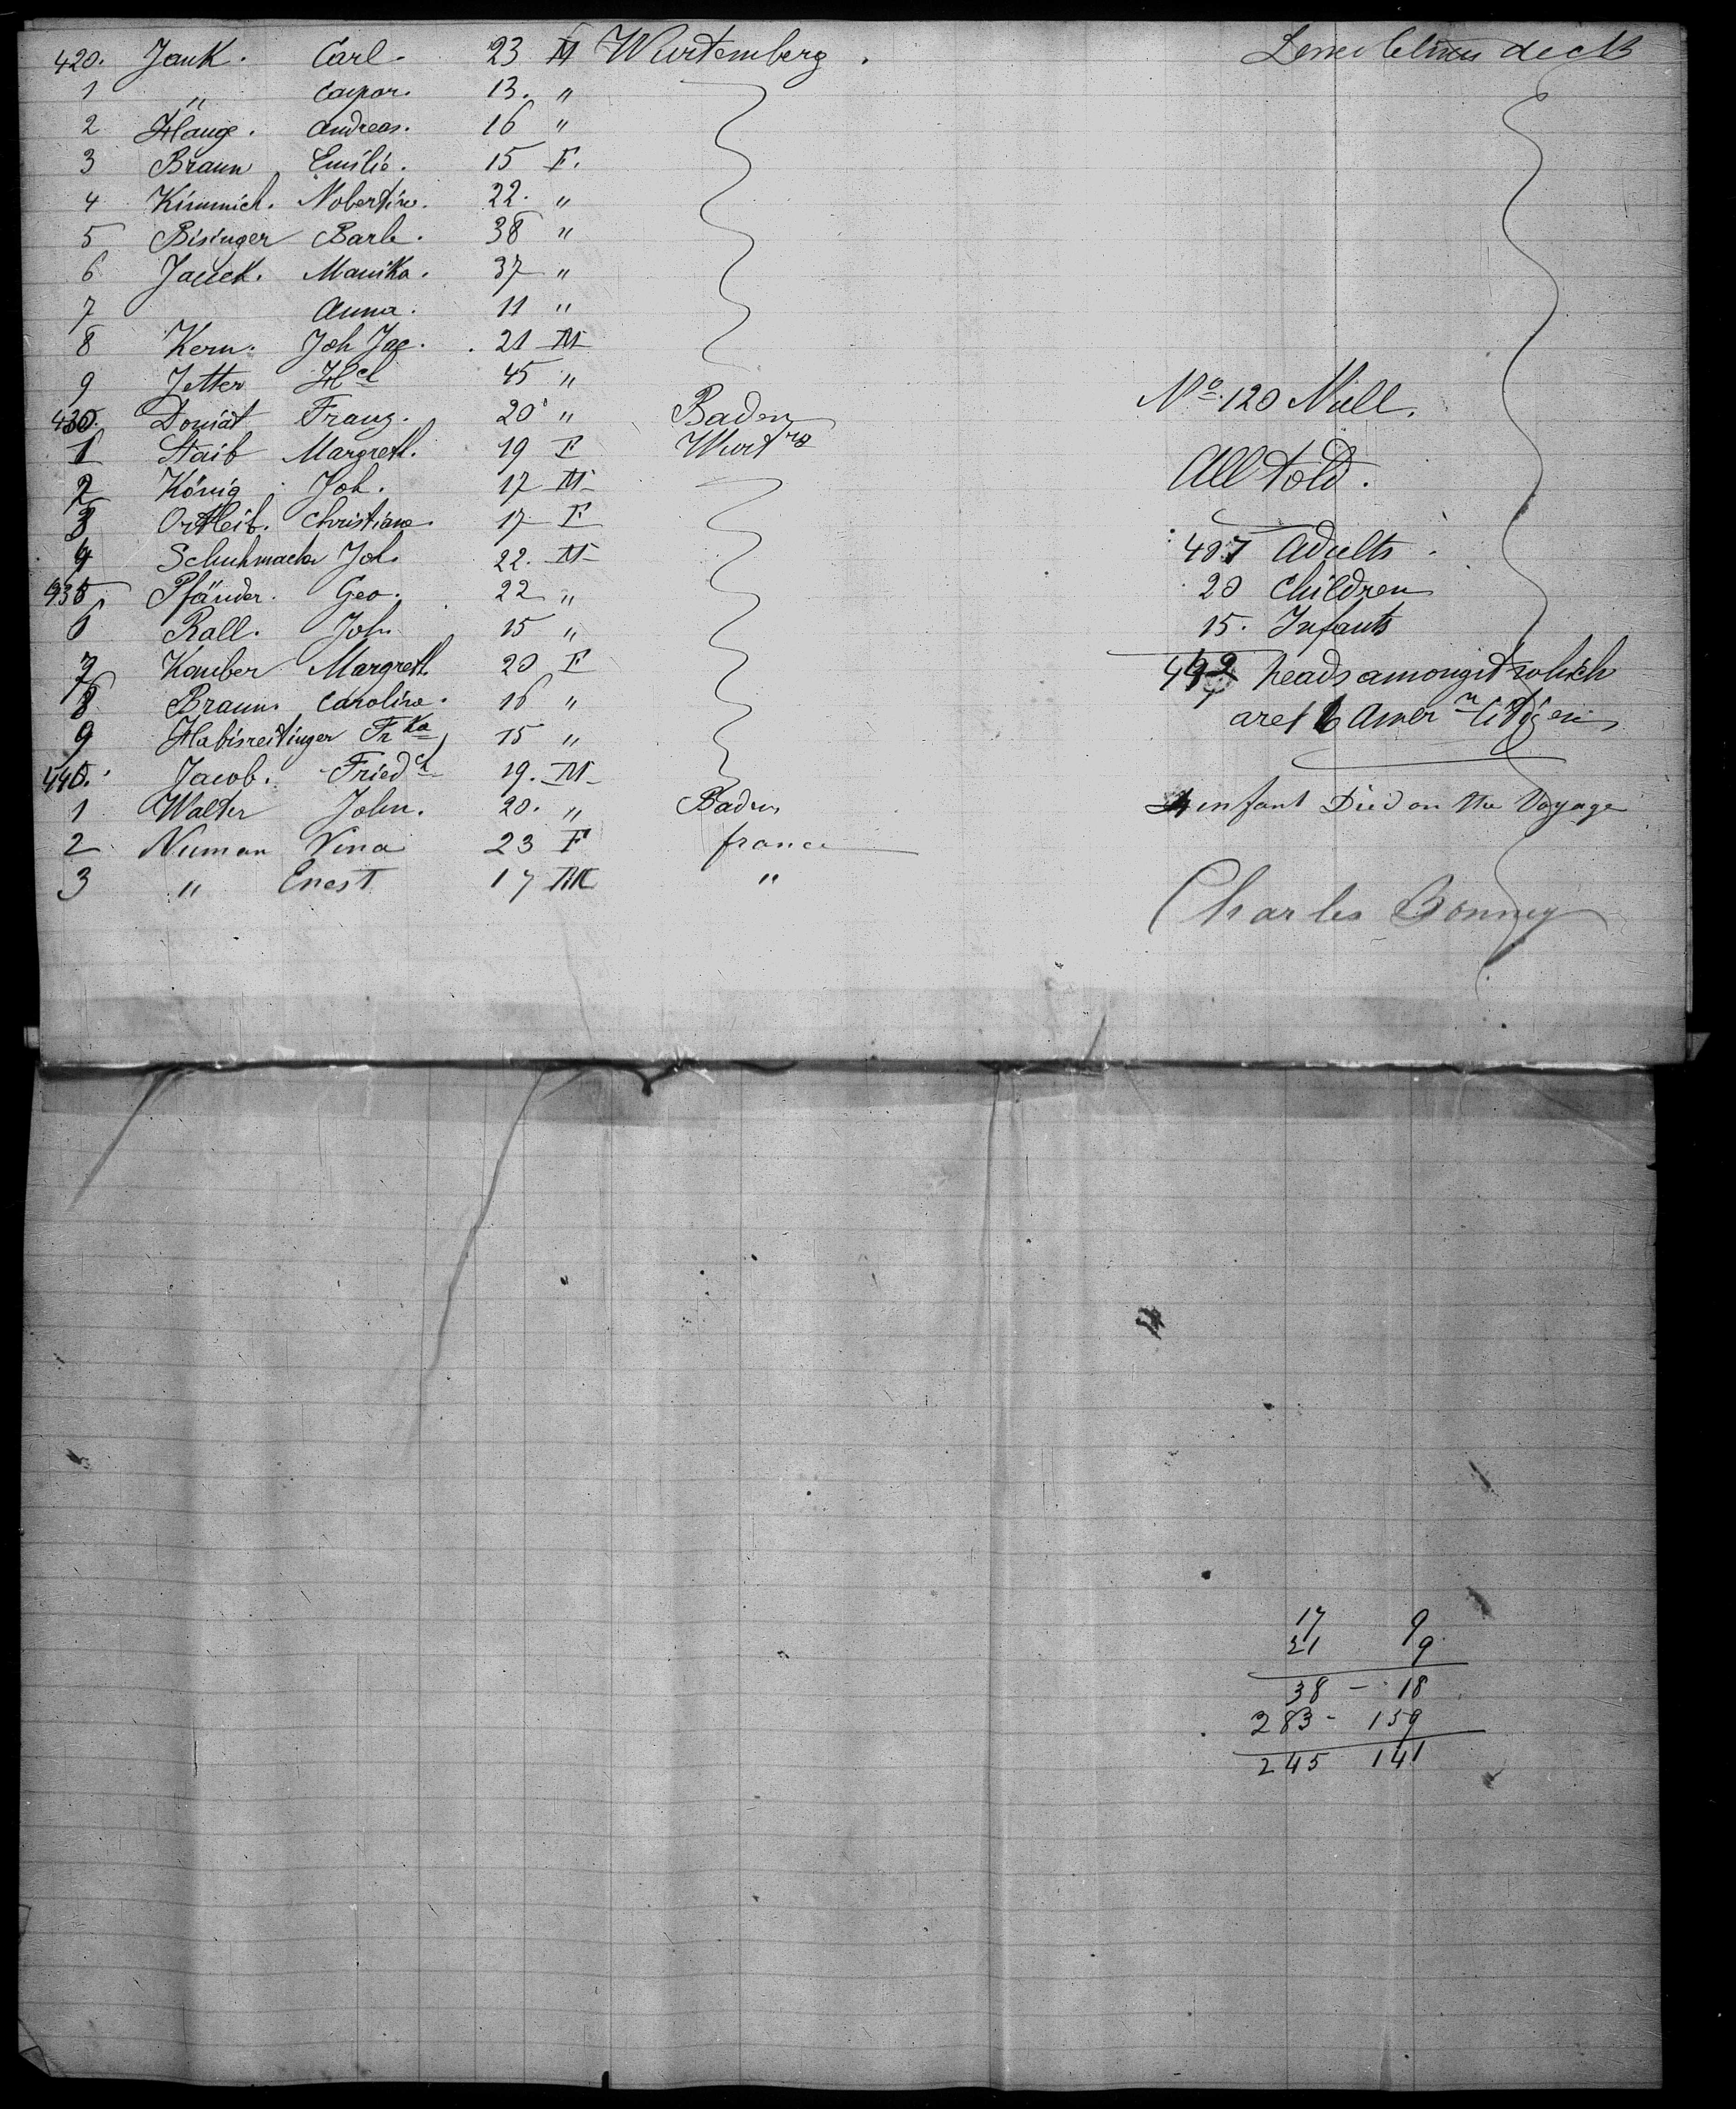 420. Jauk. Carl. 23 M Wurtemberg.
1 " Caspar. 13. "
2 Hauge. Andreas. 16 "
3 Braun Emilie. 15 F.
4 Kimmich. Nobertine. 22. "
5 Bisinger Barb. 38 "
6 Jauck. Manika. 37 "
7 Anna. 11 "
8 Kern. Joh Jac. 21 M
9 Jetter Hch 45 "
430. Doniat Franz. 20 " Baden
1 Staib Margreth. 19 F Wurtrg
2 König Joh. 17 M
3 Ortlieb. Christiane. 17 F
4 Schuhmacher Joh. 22. M
435 Pfänder. Geo. 22 "
6 Rall. Joh 15 "
7 Kamber Margreth. 20 F
8 Braun. Caroline. 16 "
9 Habisreitinger Frka 15 "
440. Jacob. Friedch 19. M
1 Walter John. 20. " Baden
2 Numan Nina 23 F france
3 " Enest 17 M "
deck
No. 120 Niell.
All told.
407 Adults
20 Children
15. Infants
442 heads amongst which
are 16 Amern Citizens
infant Died on the Voyage
Charles Bonney
17 9
21 9
38 - 18
283 - 159
245 141